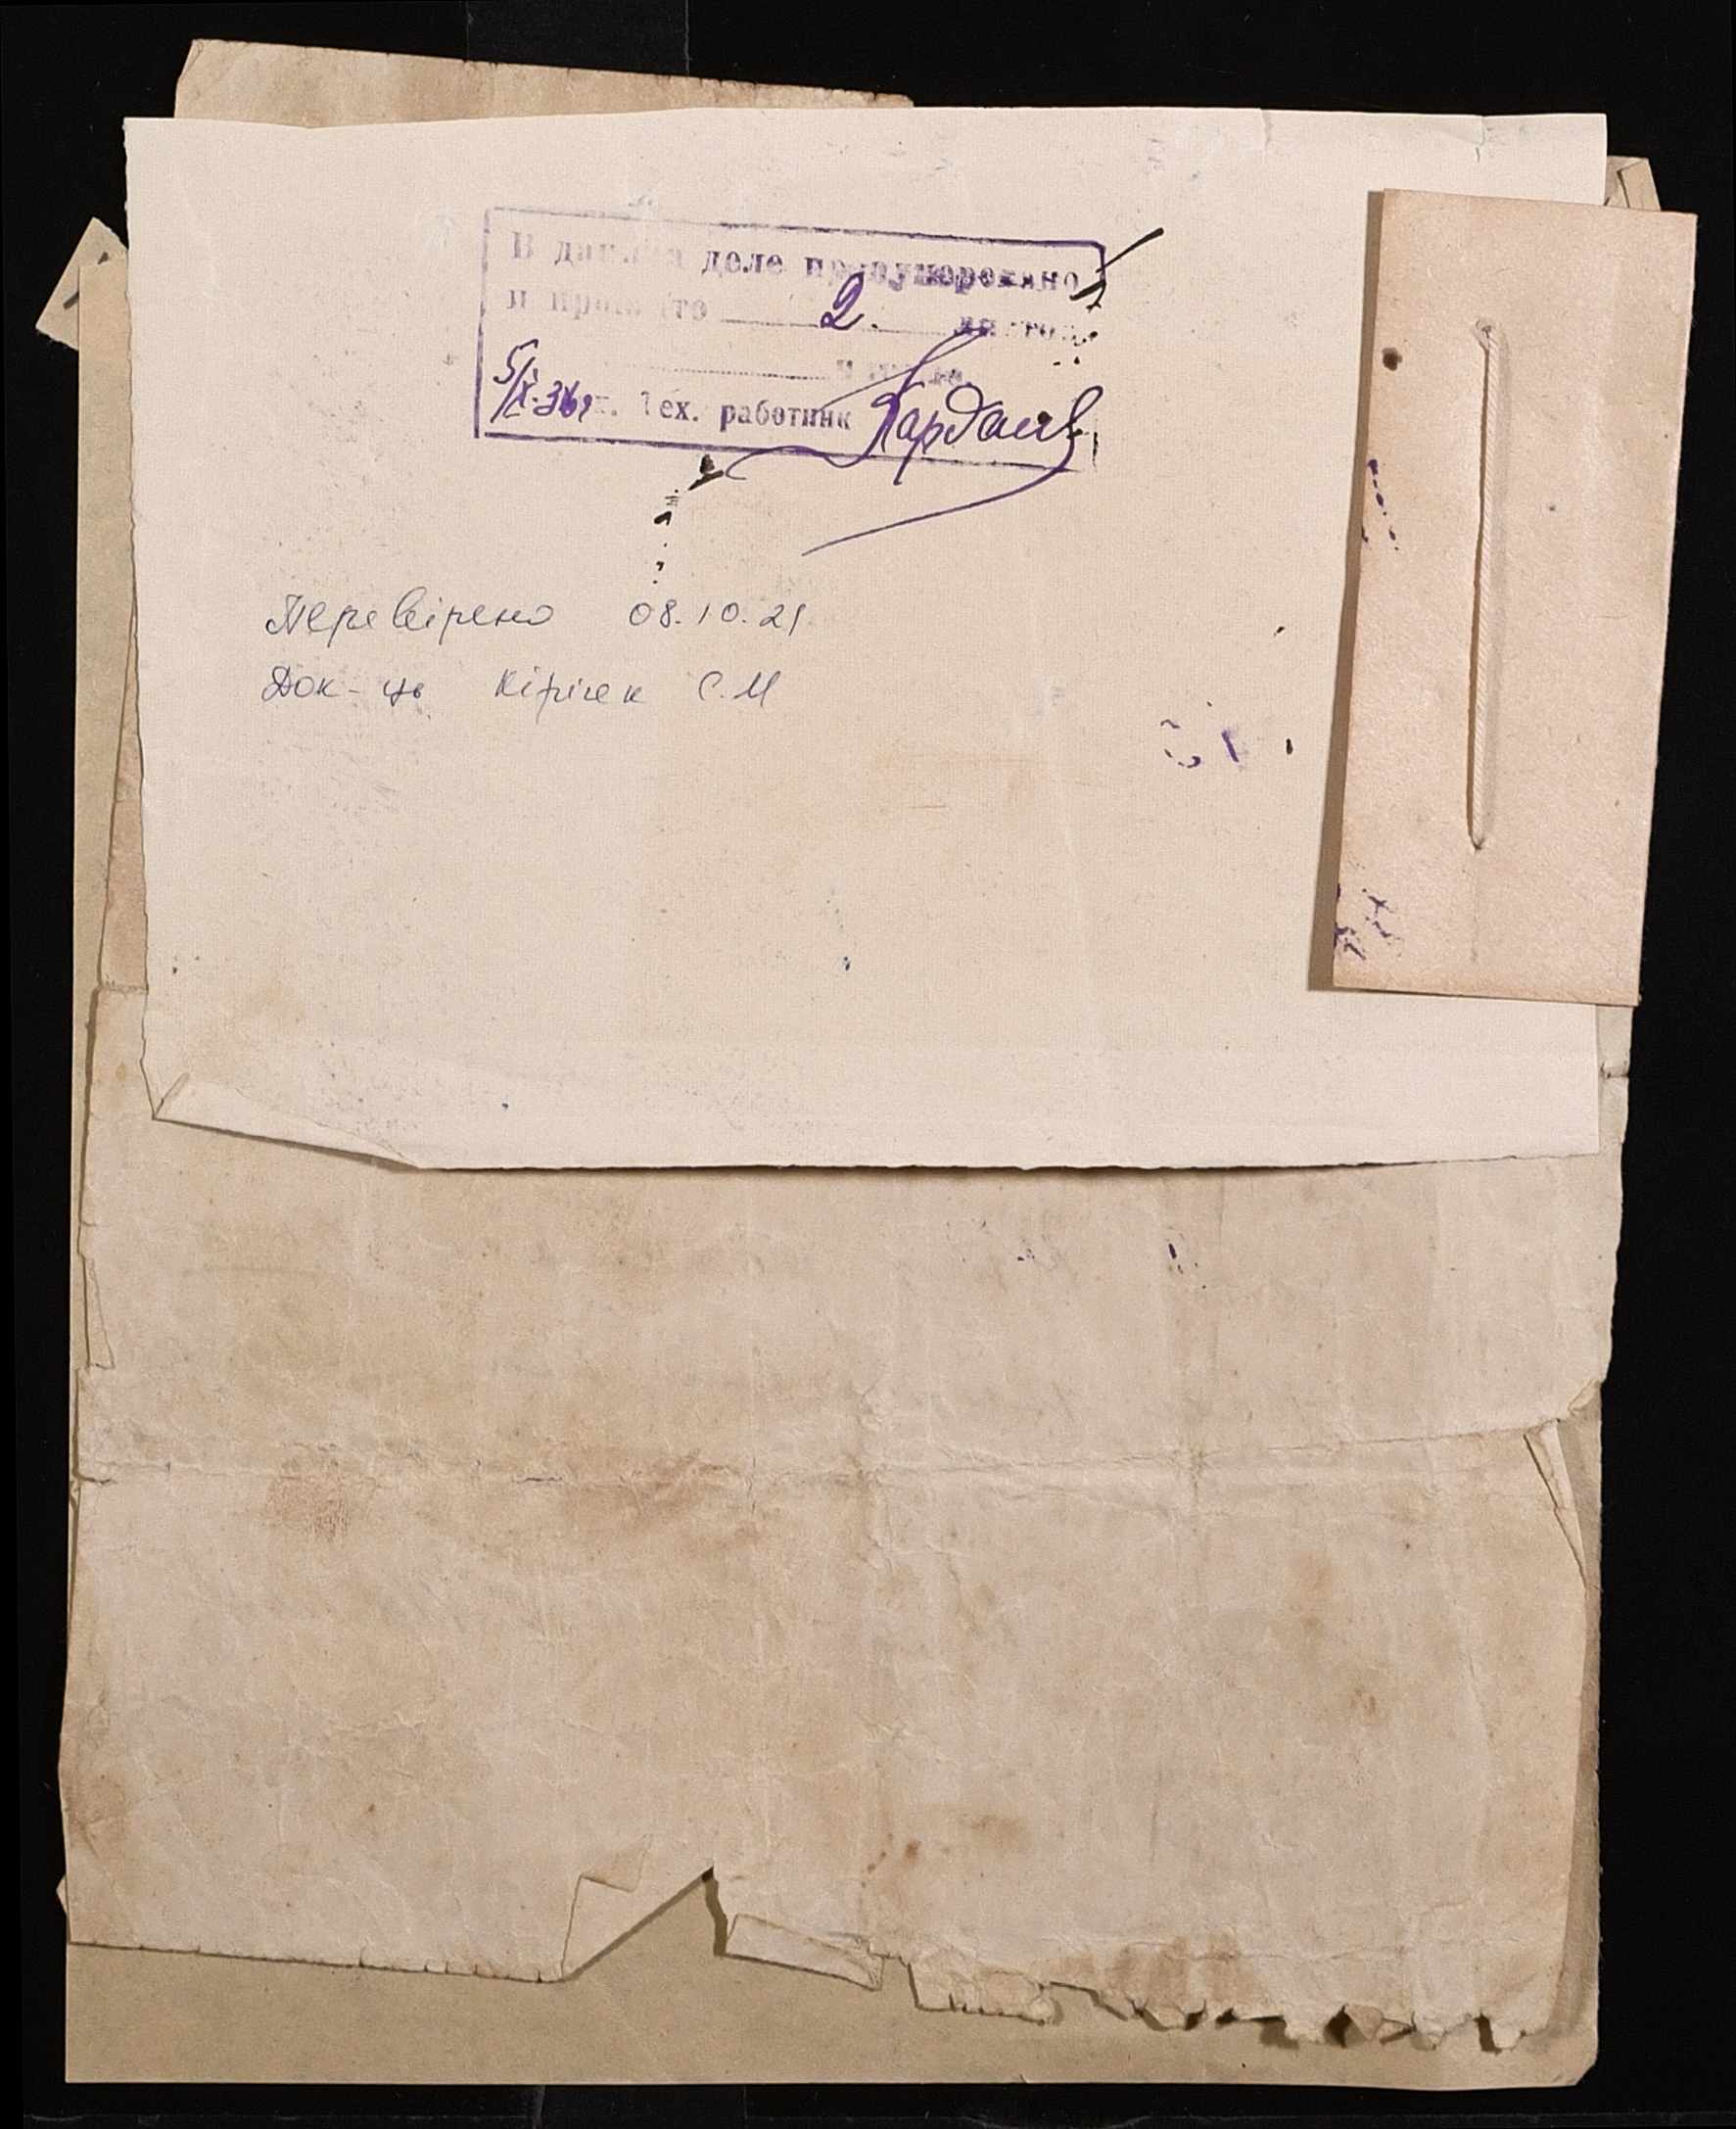 В дан деле пронумеровано
и про то 2. листов
5/X-36г. Тех. работник
Перевірено 08.10.21
Док-ць Кірічек С.М